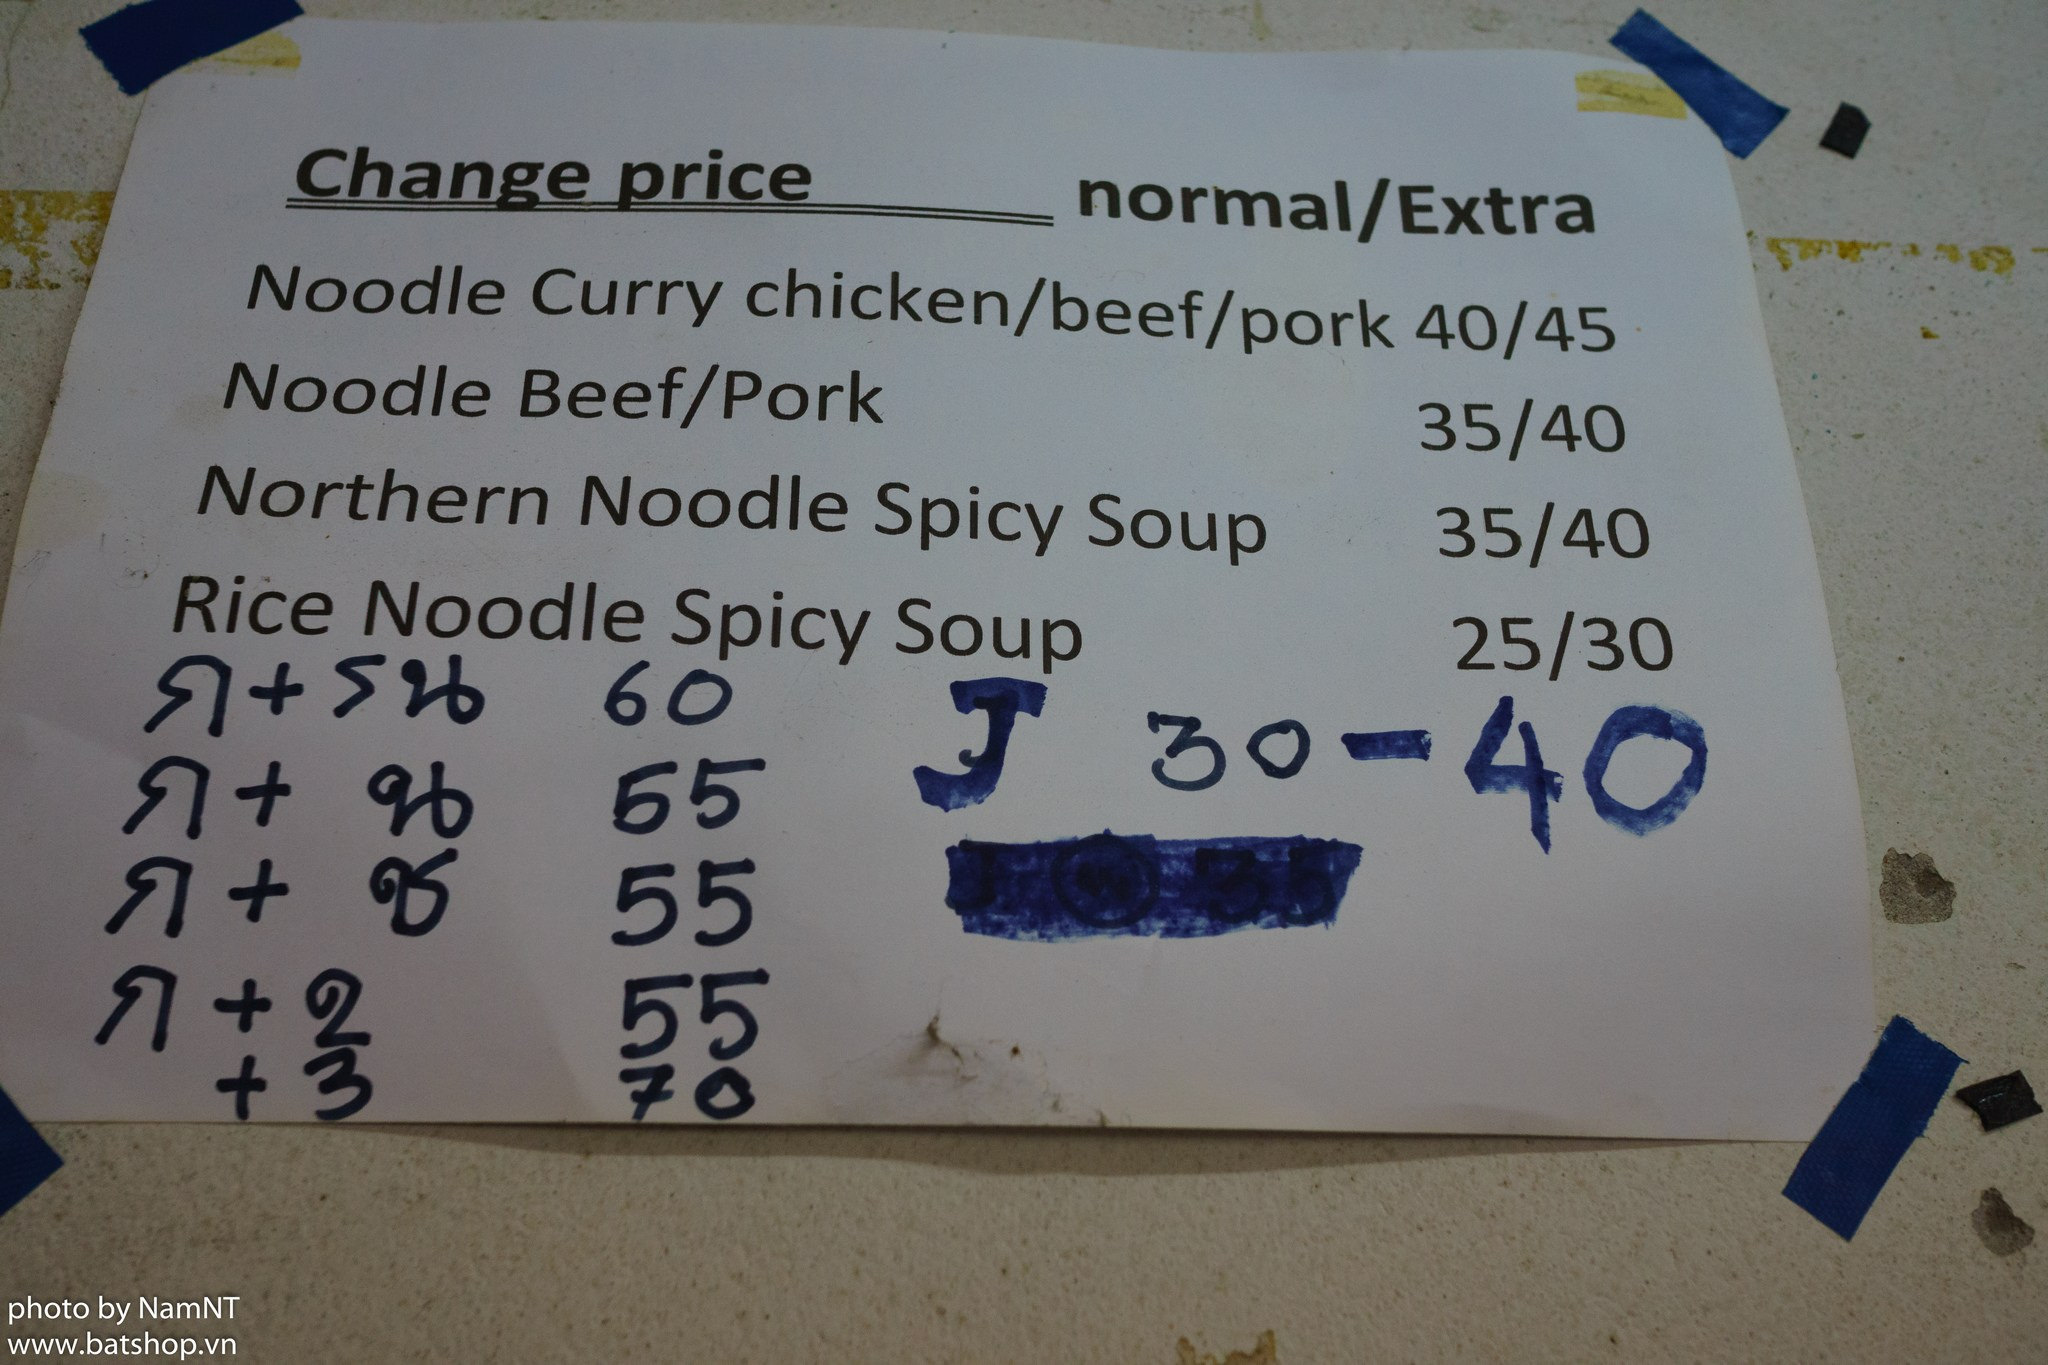 Change price normal/Extra
Noodle Curry chicken/beef/pork 40/45
Noodle Beef/Pork 35/40
Northern Noodle Spicy Soup 35/40
Rice Noodle Spicy Soup 25/30
ก + รน 60 J 30 - 40
ก + น 55
ก + ช 55
ก + 2 55
+ 3 70
photo by NamNT
www.batshop.vn